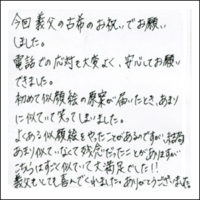 今回義父の古希のお祝いでお願い
しました。
電話での応対も大変よく、安心してお願い
できました。
初めて似顔絵の原案が届いたとき、あまり
に似ていて笑ってしまいました。
よくある似顔絵もやったことがあるのですが、結局
あまり似ていなくて残念だったことがありますが
こちらはすごく似ていて大満足でした!!
義父もとても喜んでくれました。ありがとうございました